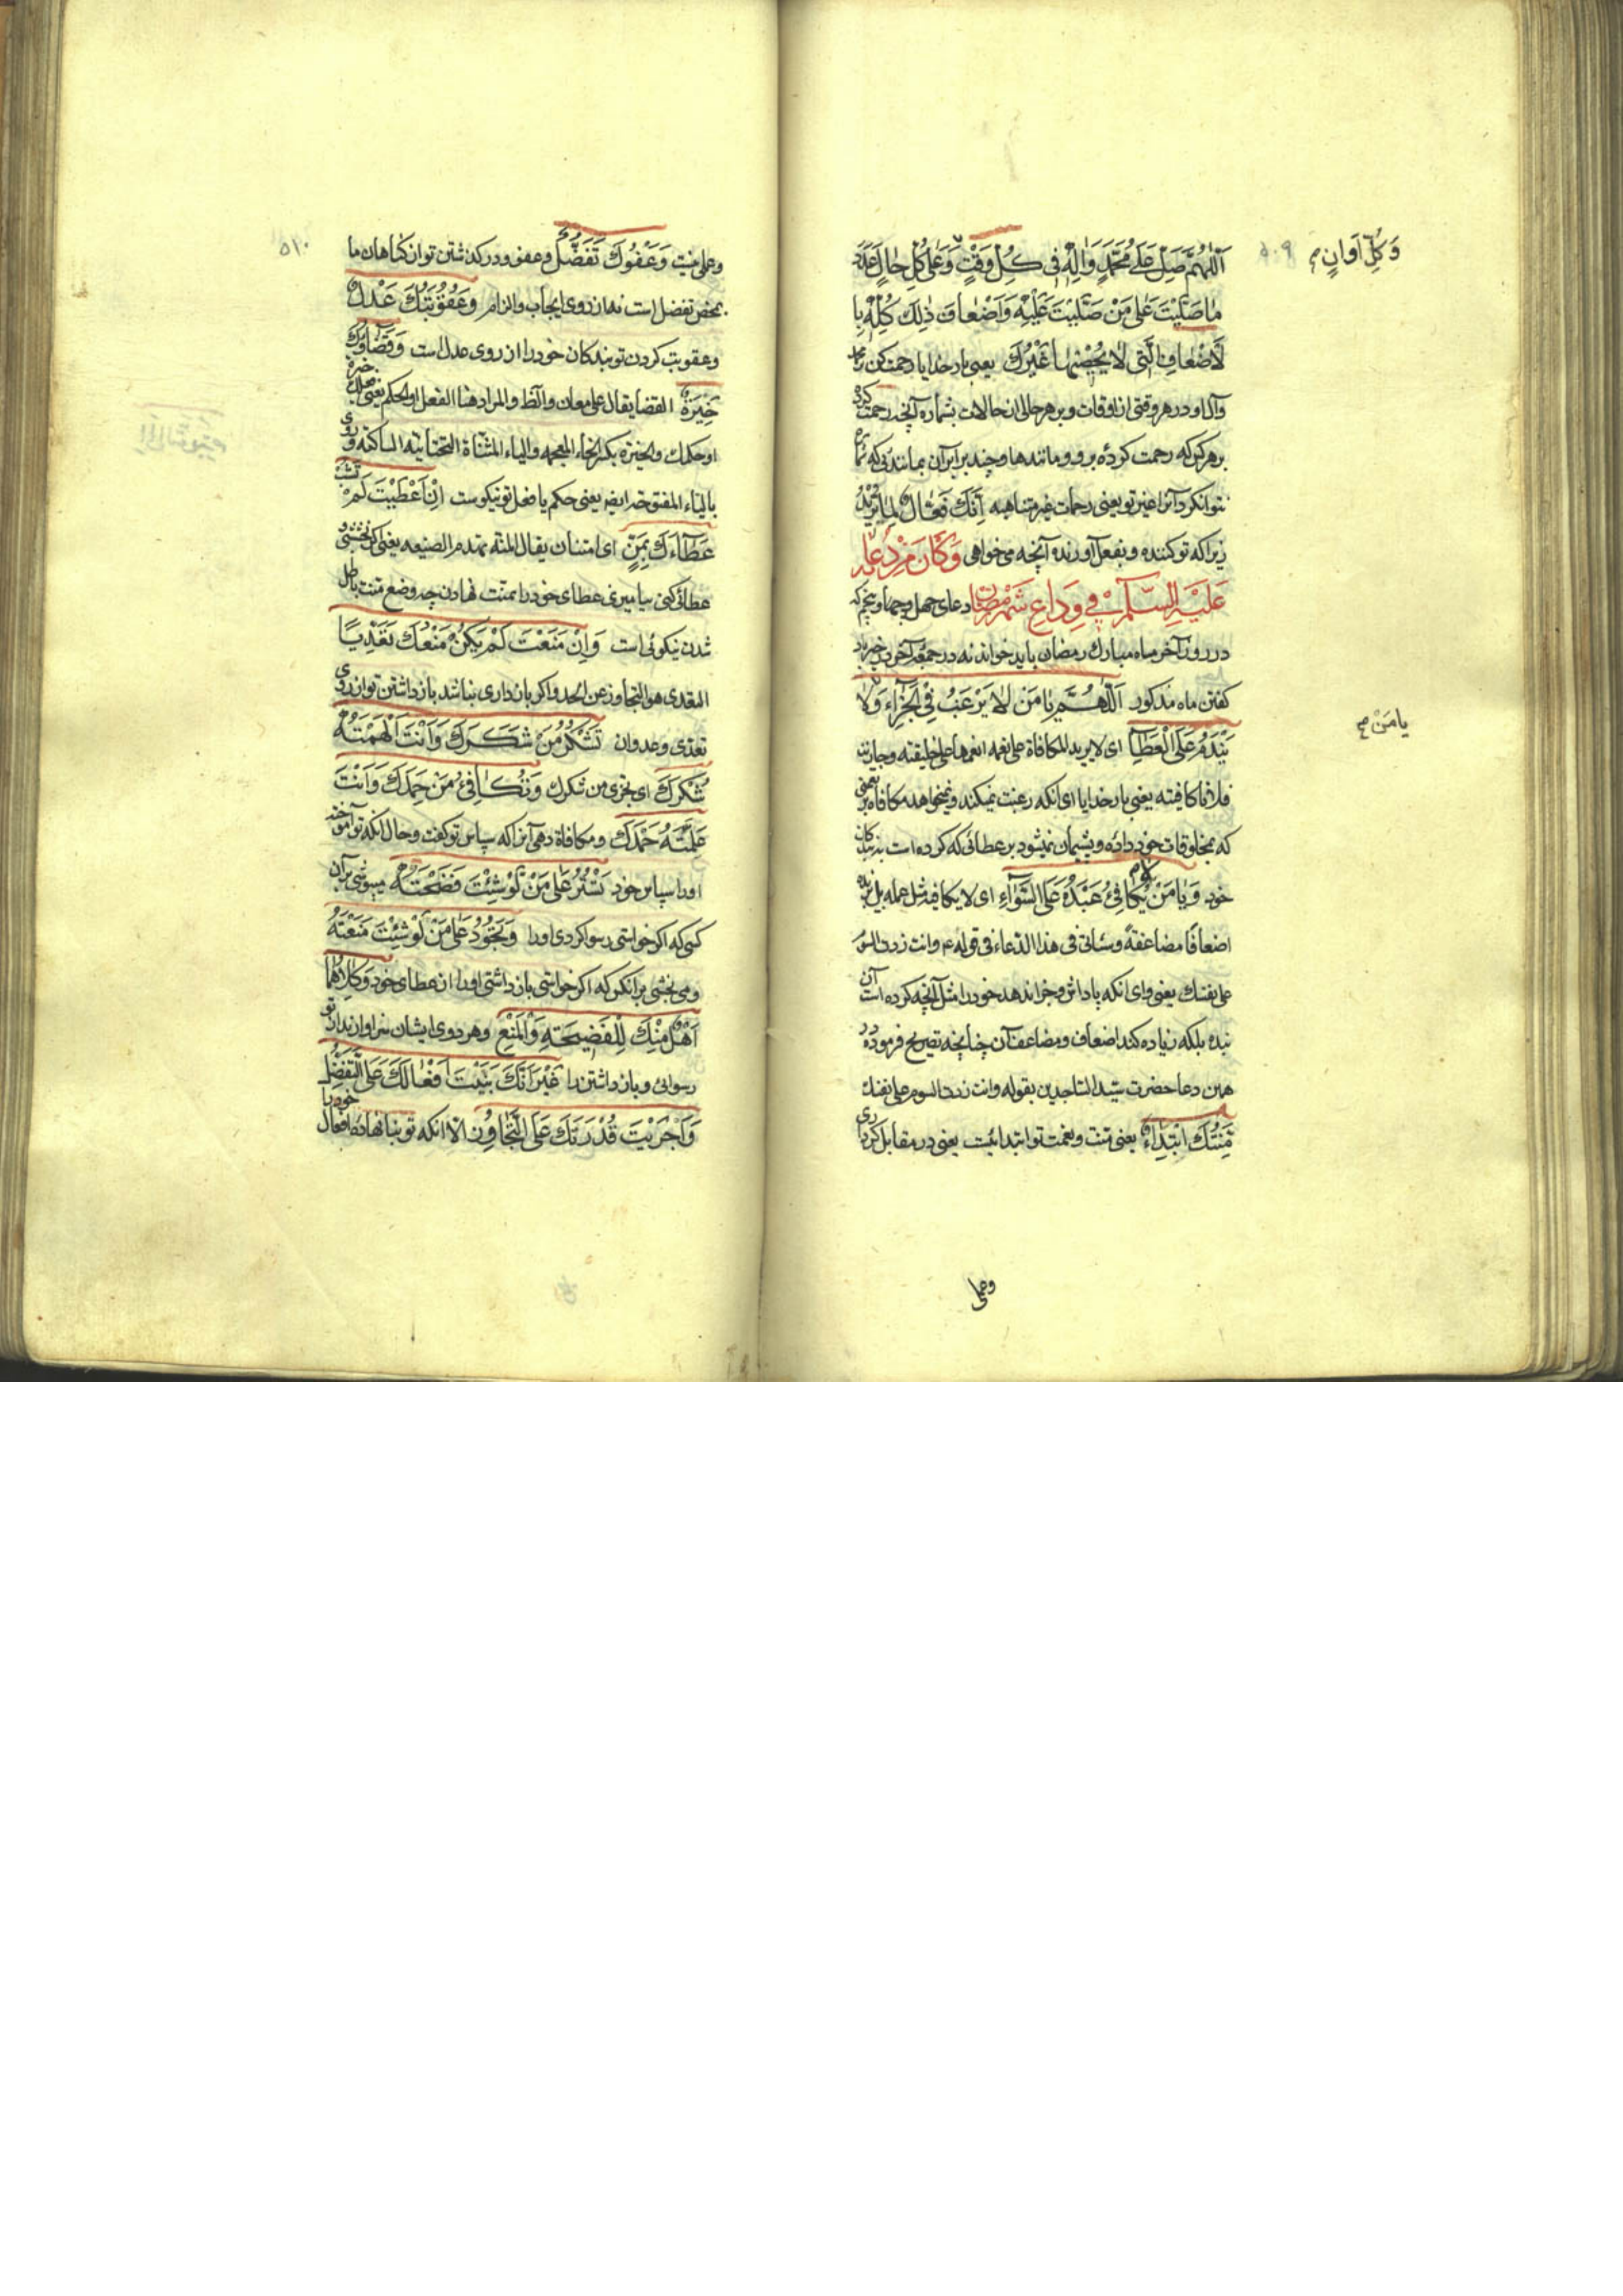 وَكُلِّ اَوانٍ م
۵۰۹
اَللّٰهُمَّ صَلِّ عَلٰى مُحَمَّدٍ وَاٰلِهِ فى كُلِّ وَقْتٍ وَعَلٰى كُلِّ حٰالٍ عَدَدَ
مٰا صَلَّيْتَ عَلٰى مَنْ صَلَّيْتَ عَلَيْهِ وَاَضْعٰافَ ذٰلِكَ كُلِّهِ بِا
لْاَضْعٰافِ الَّتى لٰا يُحْصٖيهٰا غَيْرُكَ يعنى بار خدايا رحمت كن بر محمد
وآل او در هر وقتى از اوقات و بر هر حالى از حالات بشماره آنچه رحمت كرده
بر هر كس كه رحمت كردهٔ برو و مانندها و چند برابر آن بمانندى كه شماره
نتوانكرد آنرا غير تو يعنى رحمات غير متناهيه اِنَّكَ فَعّٰالٌ لِمٰا تُرٖيدُ
زيرا كه تو كننده و بفعل آورنده آنچه ميخواهى وَكٰانَ مِنْ دُعٰائِهِ
عَلَيْهِ السَّلٰامُ فى وِدٰاعِ شَهْرِ رَمَضٰانَ دعاى چهل و چهار پنجم كه
در روز آخر ماه مبارك رمضان بايد خواند نه در جمعهٔ آخر در خير باد
كفتن ماه مذكور اَللّٰهُمَّ يٰا مَنْ لٰا يَرْغَبُ فِى الْجَزٰاءِ وَلٰا
يامَنْ م
يَنْدَمُ عَلَى الْعَطٰاءِ اى لا يريد المكافاة على نعمه انعمها على خليقته وجازته
يعنى بار خدايا اى انكه رغبت نميكند و نميخواهد مكافاه بر نعمتى
كه بمخلوقات خود داده و پشيمان نميشود بر عطائى كه كرده است ببندكان
خود وَيٰا مَنْ لٰا يُكٰافِئُ عَبْدَهُ عَلَى السَّوٰاءِ اى لا يكافيه مثل عمله بل يزيده
اضعافا مضاعفةً وسياتى فى هذا الدعاء فى قوله ع وانت زدت السوم
على نفسك يعنى واى انكه پاداش و جزا ندهد خود را مثل آنچه كرده است آن
بنده بلكه زياده كند اضعاف و مضاعف آن چنانچه تصريح فرموده در
همين دعا حضرت سيد الساجدين بقوله وانت زدت السوم على نفسك
مِنَّتُكَ ابْتِدٰاءٌ يعنى منت و نعمت تو ابتدائيست يعنى در مقابل كردارى
وعملى
۵۱۰
وعملى نيست وَعَفْوُكَ تَفَضُّلٌ و عفو و دركذشتن تو از كناهان ما
بمحض تفضل است نه از روى ايجاب و الزام وَعُقُوبَتُكَ عَدْلٌ
وعقوبت كردن تو بندكان خود را از روى عدل است وَقَضٰاؤُكَ
خِيَرَةٌ القضا يقال على معان والمراد هنا الفعل او الحكم يعنى
او حكمك والخيرة بكسر الخاء المعجمه والياء المثناة التحتانية الساكنة وروى
بالياء المفتوحه ايضا يعنى حكم يا فعل تو نيكوست اِنْ اَعْطَيْتَ لَمْ تَشُبْ
عَطٰاءَكَ بِمَنٍّ اى امتنان يقال المنة تهدم الصنيعه يعنى اكر بخشى
عطائى كنى نياميزى عطاى خود را بمنت نهادن چه وضع منت باطل
شدن نيكوئى است وَاِنْ مَنَعْتَ لَمْ يَكُنْ مَنْعُكَ تَعَدِّيًا
التعدى هو التجاوز عن الحد و اكر باز دارى نباشد باز داشتن تو از روى
تعدى و عدوان تَشْكُرُ مَنْ شَكَرَكَ وَاَنْتَ اَلْهَمْتَهُ
شُكْرَكَ اى تجزى من شكرك وَتُكٰافِئُ مَنْ حَمِدَكَ وَاَنْتَ
عَلَّمْتَهُ حَمْدَكَ و مكافاة دهى آنرا كه سپاس تو كفت و حال انكه تو آموختهٔ
اورا سپاس خود تَسْتُرُ عَلٰى مَنْ لَوْ شِئْتَ فَضَحْتَهُ ميپوشى بر آن
كسى كه اكر خواستى رسوا كردى اورا وَتَجُودُ عَلٰى مَنْ لَوْ شِئْتَ مَنَعْتَهُ
و مى بخشى بر انكس كه اكر خواستى باز داشتى اورا از عطاى خود وَكِلٰاهُمٰا
اَهْلٌ مِنْكَ لِلْفَضٖيحَةِ وَالْمَنْعِ و هر دوى ايشان سزاوارند از تو
رسوائى و باز داشتن را غَيْرَ اَنَّكَ بَنَيْتَ اَفْعٰالَكَ عَلَى التَّفَضُّلِ
وَاَجْرَيْتَ قُدْرَتَكَ عَلَى التَّجٰاوُزِ الا انكه تو بنا نهادهٔ افعال خود را